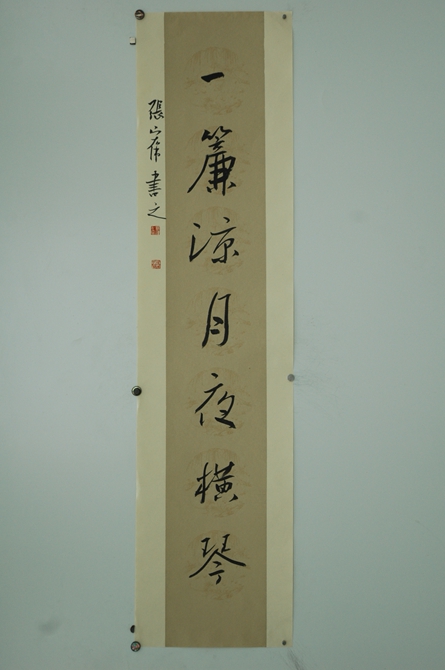 一簾涼月夜橫琴
張崔書之